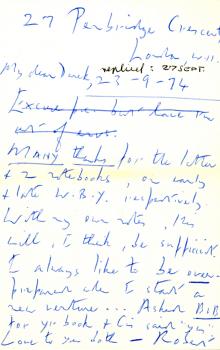 27 Pembridge Crescent
London W.11.
My dear Derek, 23-9-74
replied: 27 Sept.
Excuse pen but have run
out of
MANY thanks for the letter
& 2 notebooks, on early
& late W.B.Y. respectively
With my own notes, this
will, I think, be sufficient.
I always like to be over-
prepared when I start a
new venture... Asked B.I.B.
for yr. book &
Love to you both - Robert